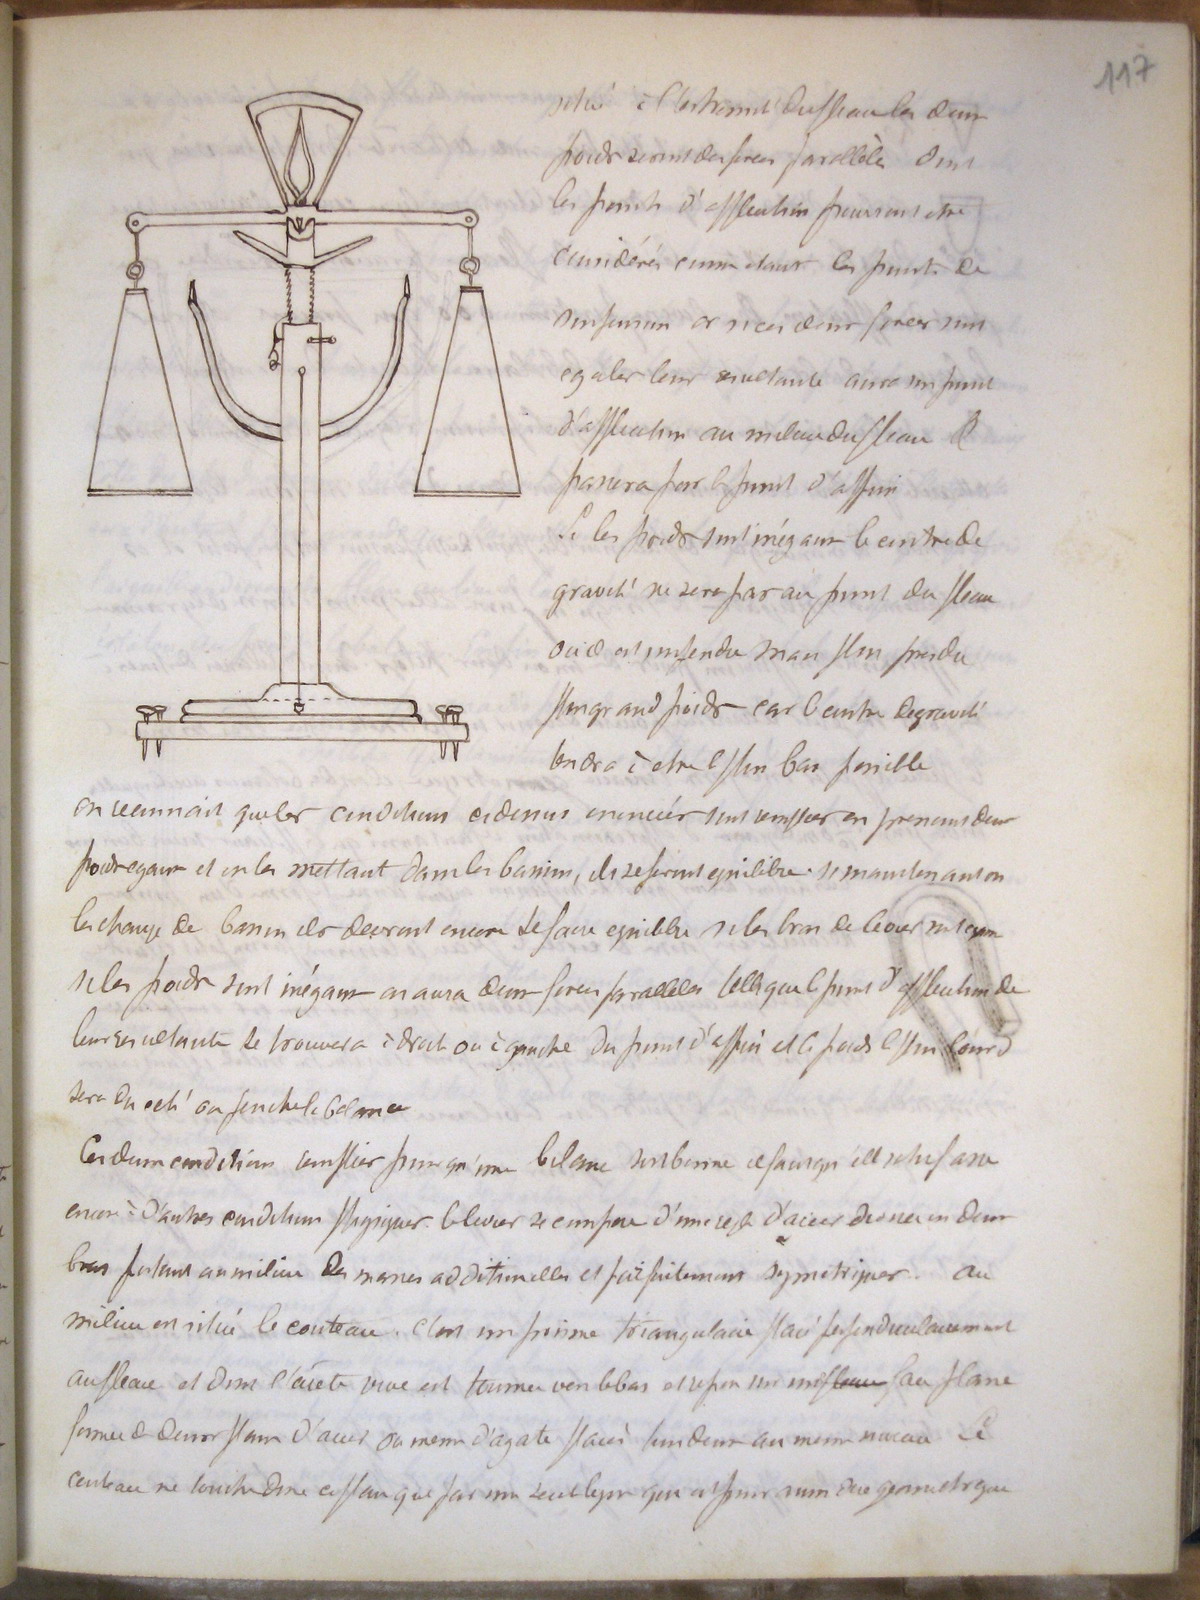 117
situé à l'extremité du fleau les deux
poids seront des forces parallèles dont
les points d'application pourront etre
considérés comme etant les points de
suspension or si ces deux forces sont
egales leur resultante aura son point
d'application au milieu du fleau &
passera par le point d'appui
Si les poids sont inégaux le centre de
gravité ne sera pas au point du fleau
où il est suspendu mais plus près du
plus grand poids car le centre de gravité
tendra à etre le plus bas possible
on reconnait que les conditions cidessus enoncées sont remplies en prenant deux
poids egaux et en les mettant dans les bassins, ils se feront equilibre si maintenant on
les change de bassin ils devront encore se faire equilibre si les bras de levier sont egaux
si les poids sont inégaux on aura deux forces parallèles telles que le point d'application de
leur resultante se trouvera à droite ou à gauche du point d'appui et le poids le plus lourd
sera du coté où penche la balance
Ces deux conditions remplies pour qu'une balance soit bonne il faut qu'elle satisfasse
encore à d'autres conditions physiques le levier se compose d'une tige d'acier divisée en deux
bras portant au milieu des masses additionelles et parfaitement symetriques. au
milieu est situé le couteau. C'est un prisme triangulaire placé perpendiculairement
au fleau et dont l'arète vive est tournée vers le bas et repose sur un plan
formé de deux plans d'acier ou meme d'agate placés tous deux au meme niveau Le
couteau ne touche donc ce plan que par une seule ligne qui est pour ainsi dire geometrique